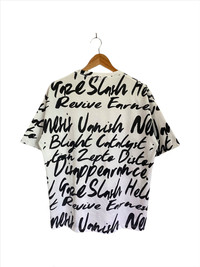 Gaze Slash Hell
Revive Earnes
nesis Vanish Ne
Blight Catalyst
Zepto Dist
Disappearance
Gaze Slash Hell
Revive Earnes
nesis Vanish Ne